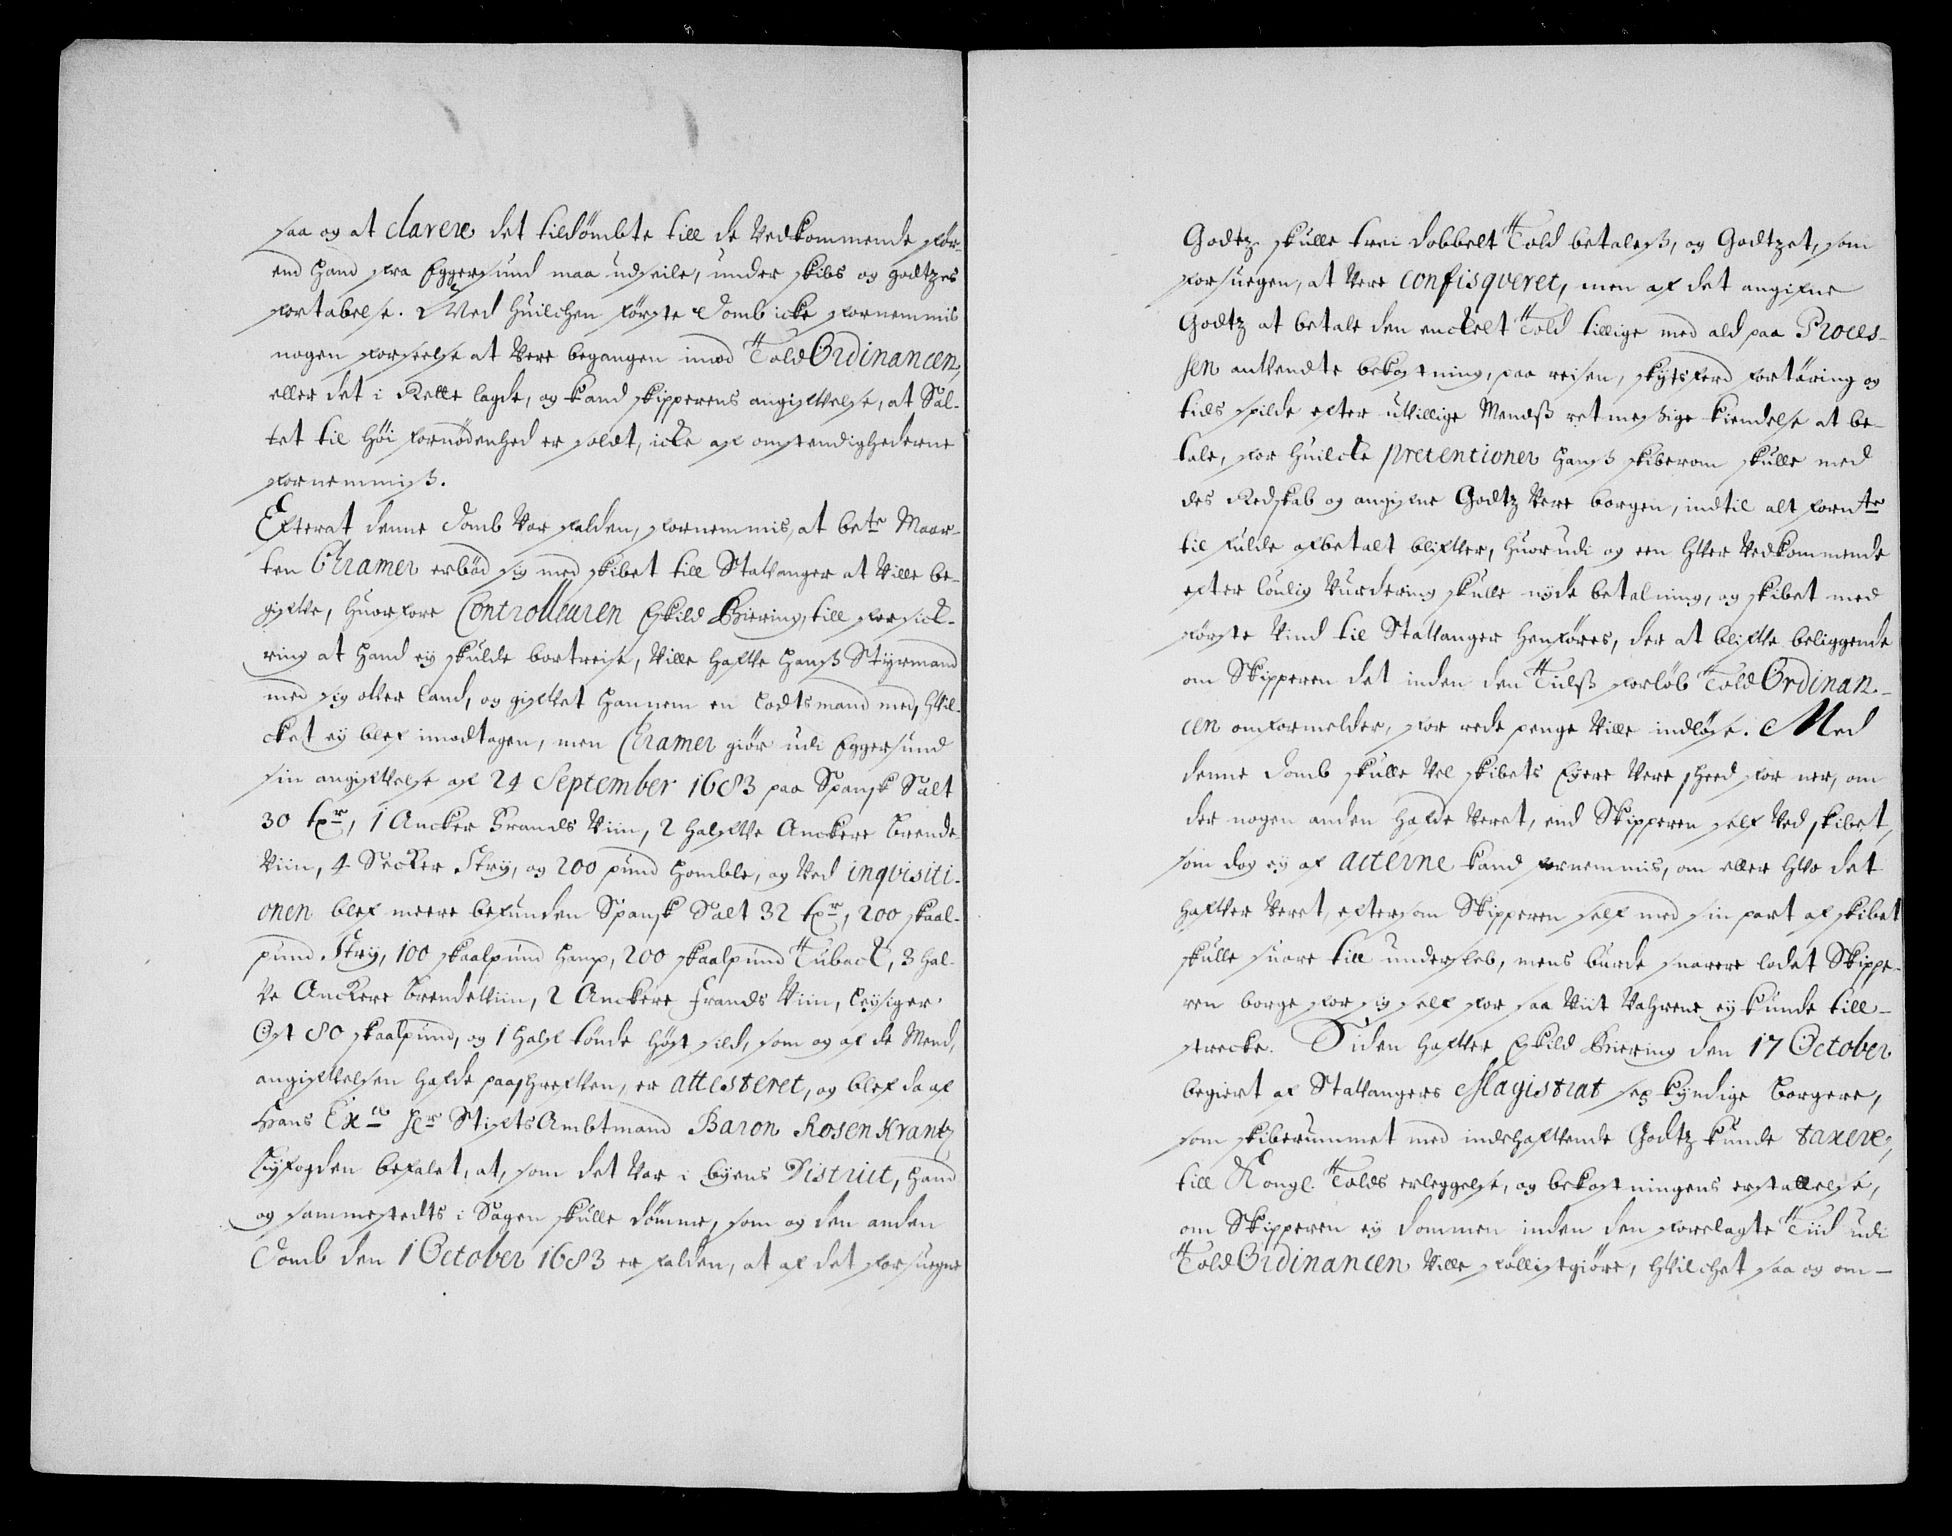 saa og at clarere det tildømbte till de Vedkommende for-
end Hand fra Eggersund maa udseile, under skibs og godtzes
fortabelse. Ved Huilchen første Domb icke fornemmis
nogen forseelse at Vere begangen imod Told Ordinancen,
eller det i Rette lagde, og kand skipperens angiffvelse, at Sal-
tet til Høi fornødenhed er soldt, icke af omstendighederne
fornemmiß.
Efterat denne Domb Var falden, fornemmis, at bete Maar-
ten Cramer erbød sig med skibet till Stavanger at Ville be-
giffve, Huorfore Controlleuren Eskild Biering, till forsick-
ring at Hand ey skulde bortreise, Ville Haffve Hanß Styrmand
med sig over Land, og giffvet Hannem en Lodtsmand med, Hvil-
cket ey blef imodtagen, men Cramer giør udi Eggersund
sin angiffvelse af 24 September 1683 paa Spansk Salt
30 tr, 1 Ancker Frands Viin, 2 Halffve Anckere Brende
Viin, 4 Secker Stry, og 200 pund Homble, og Ved inqvisiti-
onen blef meere befunden Spansk Salt 32 tr, 200 skaal-
pund Stry, 100 skaalpund Hamp, 200 skaalpund Tuback, 3 Hal-
ve Anckere Brendeviin, 2 Anckere Frands Viin, Leysiger
Ost 80 skaalpund, og 1 Half tønde Høst sild, som og af de Mend,
angiffvelsen Hafde paaskreffven, er attesteret, og blef da af
Hans Exce Hr StiftsAmbtmand Baron Rosenkrantz
Byfogden befalet, at, som det Var i byens District, Hand
og sammestedts i Sagen skulle dømme, som og den anden
Domb den 1 October 1683 er falden, at af det forsuegne
Godtz skulle trei dobbelt Told betaleß, og Godtzet, som
forsuegen, at Vere confisqveret, men af det angifne
Godtz at betale den enckelt Told tillige med ald paa Proces-
sen anvendte bekostning, paa reisen, skytsferd fortæring og
tids spilde efter uvillige Mendß retmessige kiendelse at be-
tale, for Huilcke pretentioner Hanß skiberom skulle med
des Redskab og angifne Godtz Vere borgen, indtil alt fornte
til fulde afbetalt bliffver, Huorudi og een Hver Vedkommende
efter Loulig Vurdering skulle nyde betalning, og skibet med
første Vind til Stavanger Henføres, der at bliffve beliggende
om Skipperen det inden den Tidß forløb Told Ordinan-
cen omformelder, for rede penge Ville indløse. Med
denne Domb skulle Vel skibets Eyere Vere skeed for ner, om
der nogen anden Hafde Veret, end Skipperen self Ved skibet,
som dog ey af acterne kand fornemmis, om eller Hvo det
Haffver Veret, eftersom Skipperen self med sin part af skibet
skulle suare till undersleb, mens burde snarere ladet Skippe-
ren borge for sig self for saa Viit Vahrene ey kunde till-
strecke. Siden Haffver Eskild Biering den 17 October
begiert af Stavangers Magistrat sex kyndige Borgere,
som skiberummet med indehaffvende Godtz kunde taxere,
till Kongl. Tolds erleggelse, og bekostningens erstattelse,
om Skipperen ey dommen inden den forelagte Tiid udi
Told Ordinancen Ville følliстgiøre, Hvilchet saa og om-